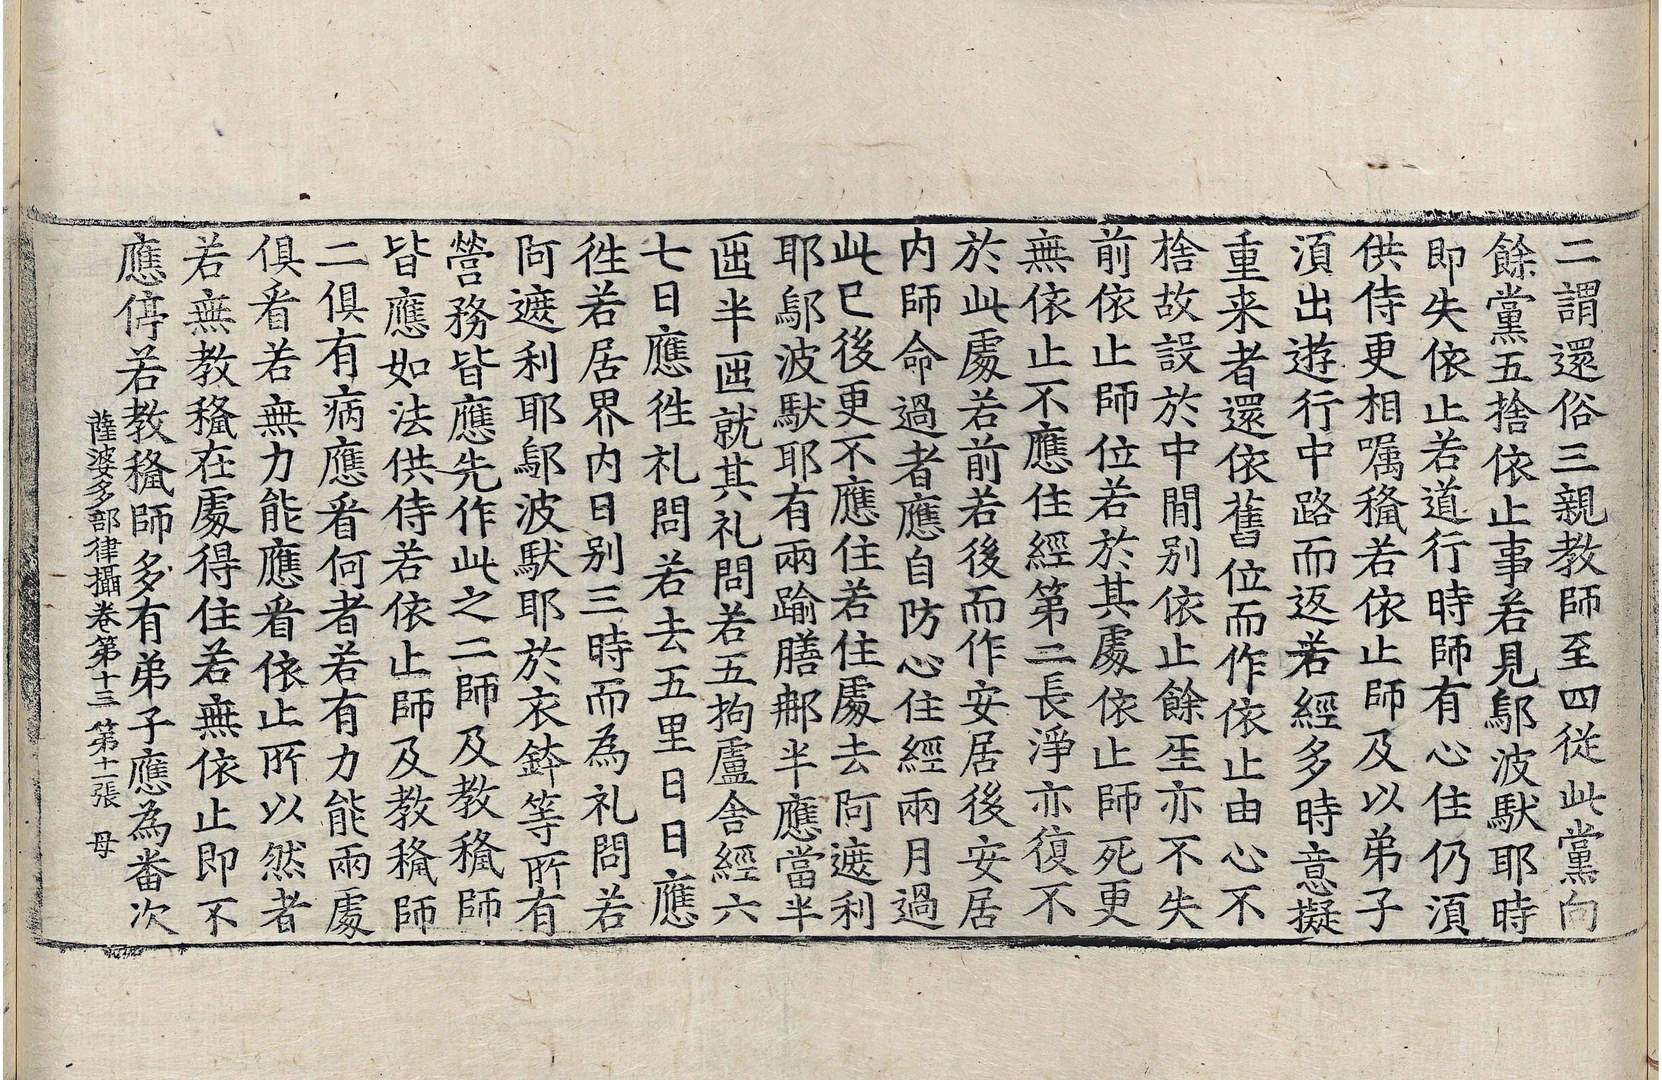 二謂還俗三親教師至四從此黨向
餘黨五捨依止事若見鄔波馱耶時
即失依止若道行時師有心住仍湏
供侍更相嘱䅲若依止師及以弟子
湏出遊行中路而返若經多時意擬
重来者還依舊位而作依止由心不
捨故設於中間别依止餘𤯔亦不失
前依止師位若於其䖏依止師死更
無依止不應住經第二長淨亦復不
於此䖏若前若後而作安居後安居
内師命過者應自防心住經兩月過
此已後更不應住若住䖏去阿遮利
耶鄔波馱耶有兩踰膳那半應當半
迊半迊就其礼問若五拘盧舎經六
七日應徃礼問若去五里日日應
徃若居界内日别三時而為礼問若
阿遮利耶鄔波馱耶於衣鉢等所有
營務皆應先作此之二師及教䅲師
皆應如法供侍若依止師及教䅲師
二俱有病應㸔何者若有力能兩䖏
俱㸔若無力能應㸔依止所以然者
若無教䅲在䖏得住若無依止即不
應停若教䅲師多有弟子應為番次
薩婆多部律攝卷第十三 第十一張 母